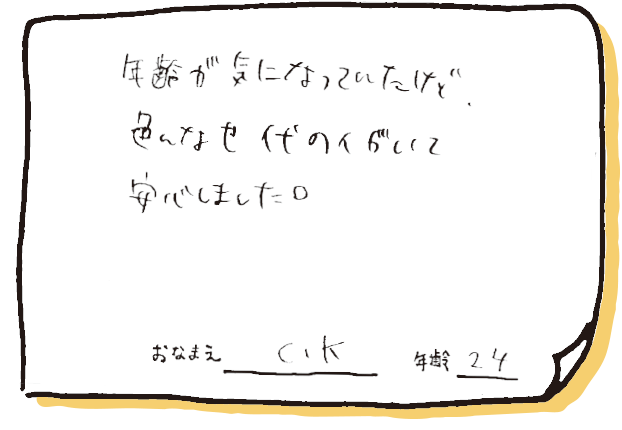 年齢が気になっていたけど、
色んなせ代の人がいて
安心しました。
おなまえ C.K 年齢 24